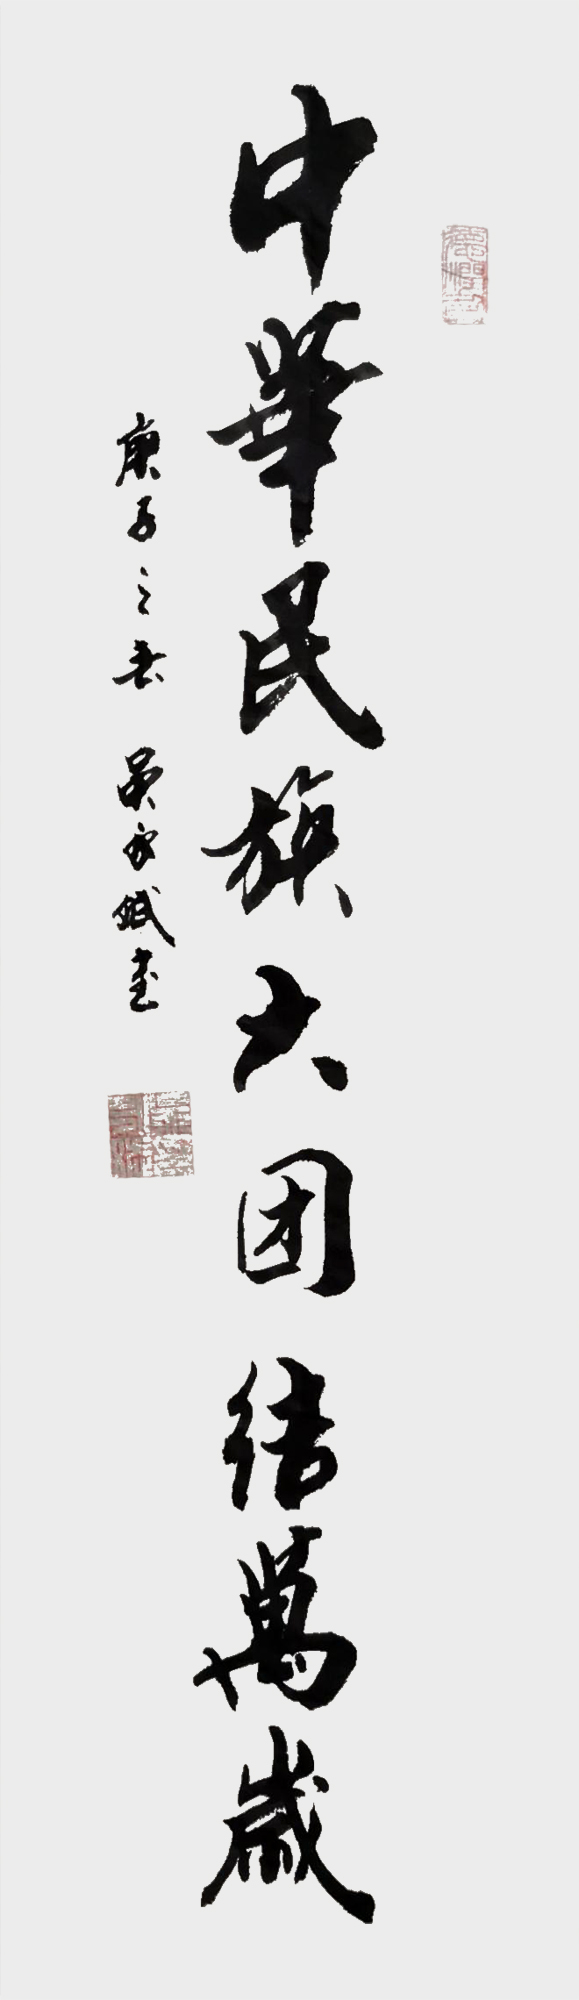 中華民族大团结萬歲
庚子之春 吴永斌書